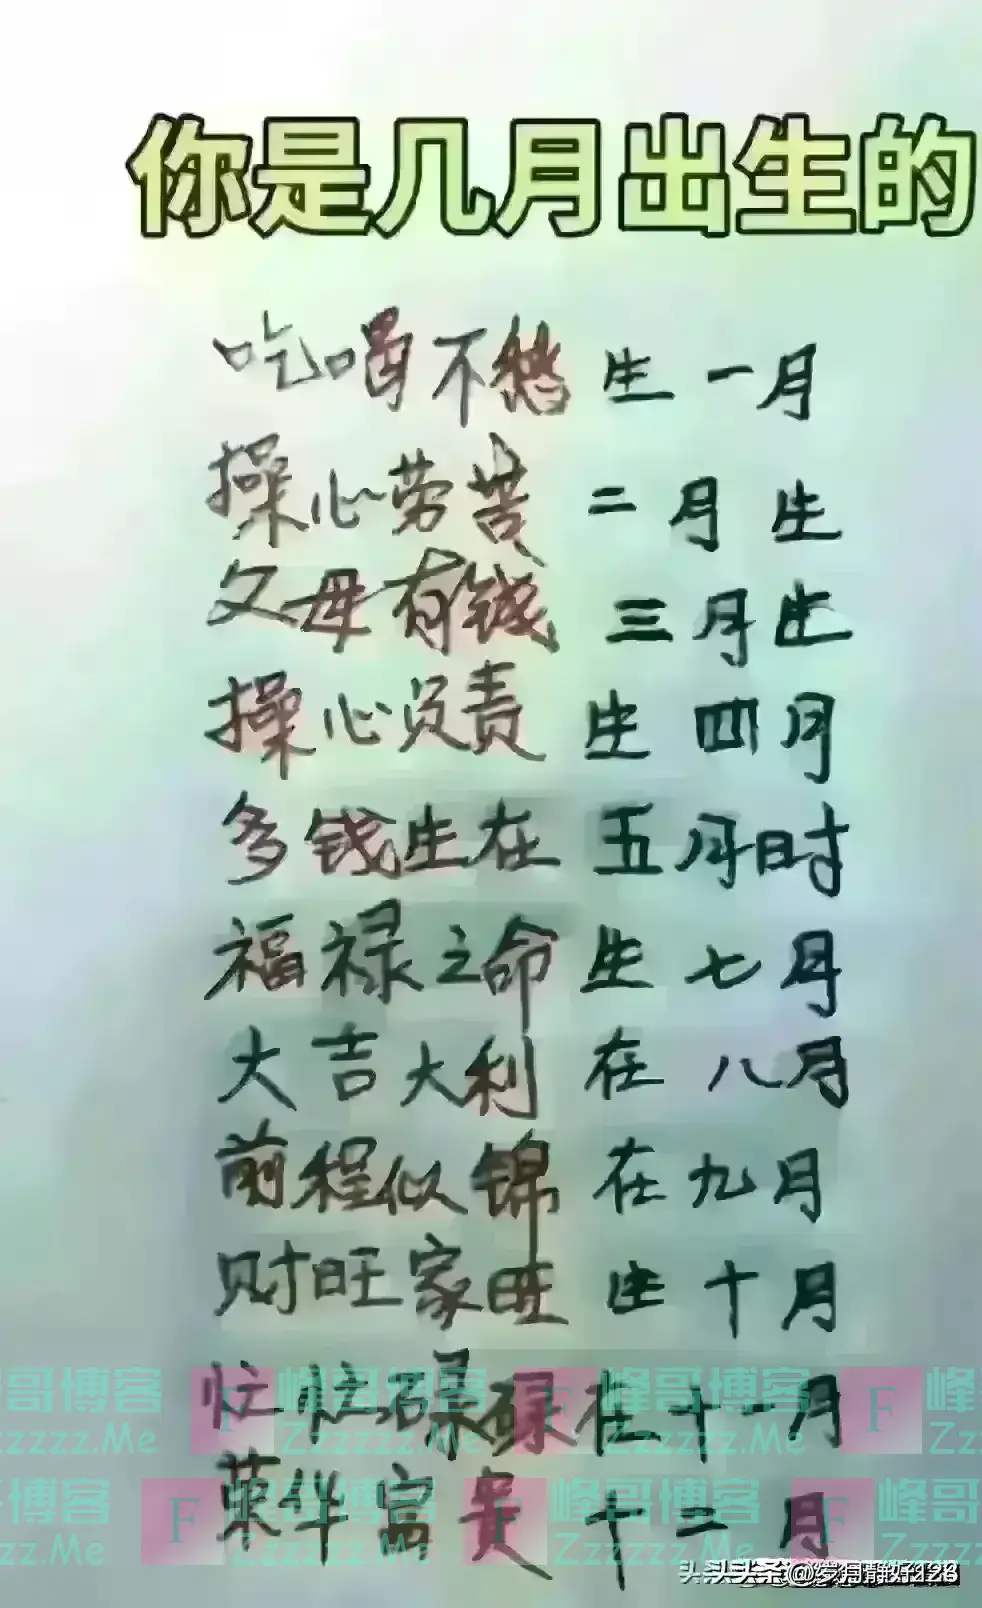 你是几月出生的
吃喝不愁 生一月
操心劳苦 二月生
父母有钱 三月生
操心负责 生四月
多钱生在 五月时
福禄之命 生七月
大吉大利 在八月
前程似锦 在九月
财旺家旺 生十月
忙忙碌碌 在十一月
荣华富贵 十二月
F 峰哥博客
Zzzzzz.Me
F 峰哥博客
Zzzzzz.Me
头条 @岁月静好128